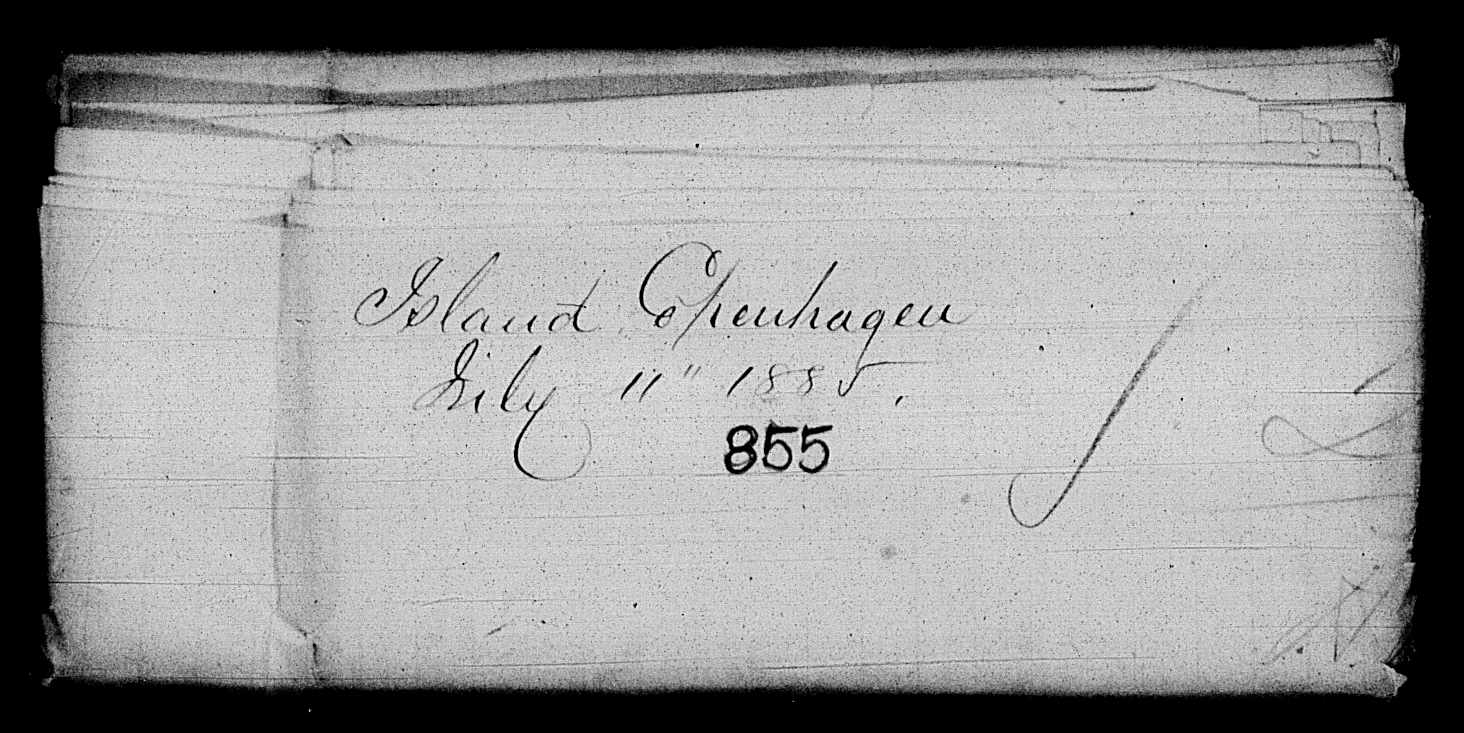 Island Copenhagen
July 11" 1885.
855